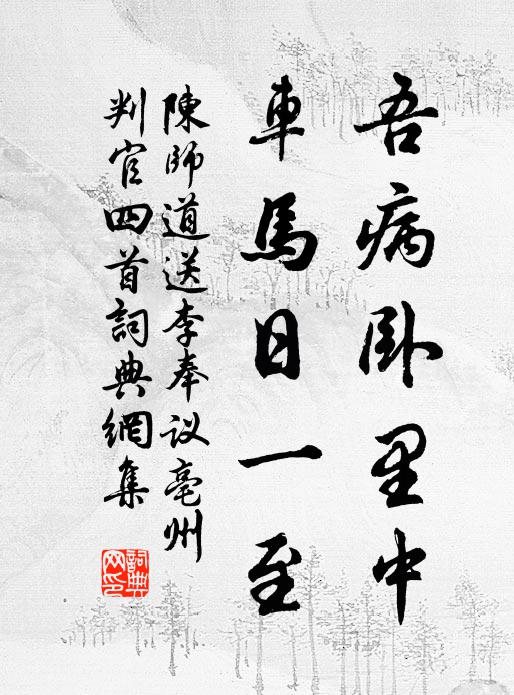 吾病卧里中
車馬日一至
陳師道送李奉议亳州
判官四首詞典網集
詞典網印